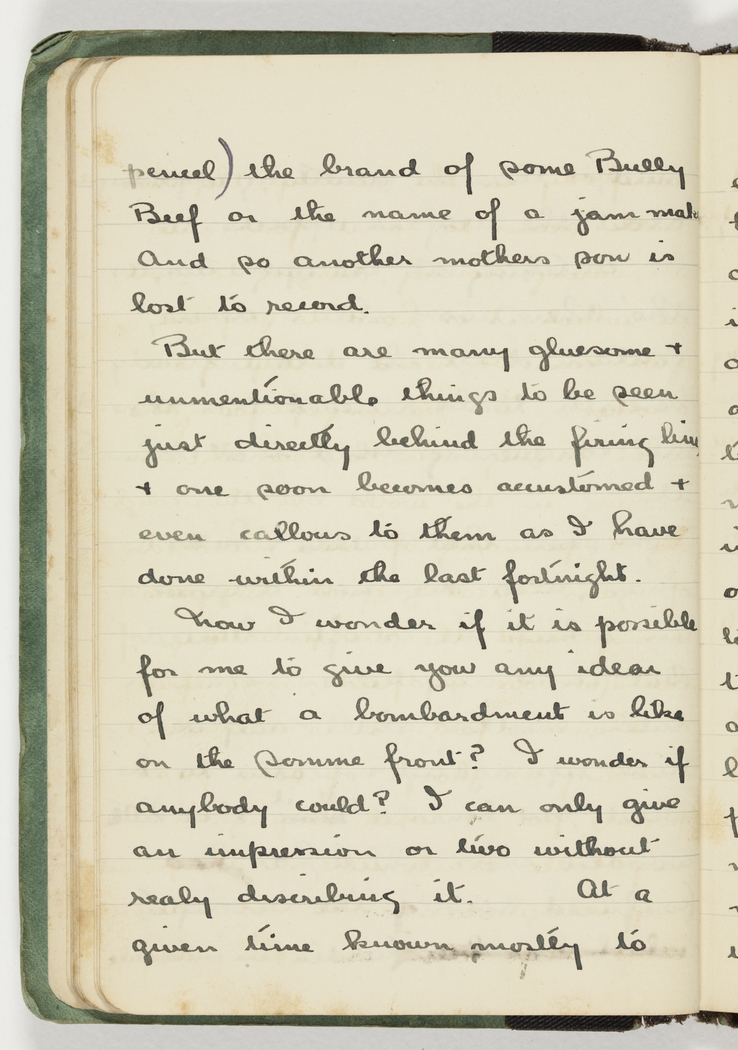 pencil) the brand of some Bully
Beef or the name of a jam
And so another mothers son is
lost to record.
But there are many gluesome +
unmentionable things to be seen
just directly behind the firing line
+ one soon becomes accustomed +
even callous to them as I have
done within the last fortnight.
Now I wonder if it is possible
for me to give you any idear
of what a bombardment is like
on the Somme front? I wonder if
anybody could? I can only give
an impression or two without
realy discribing it. At a
given time known mostly to